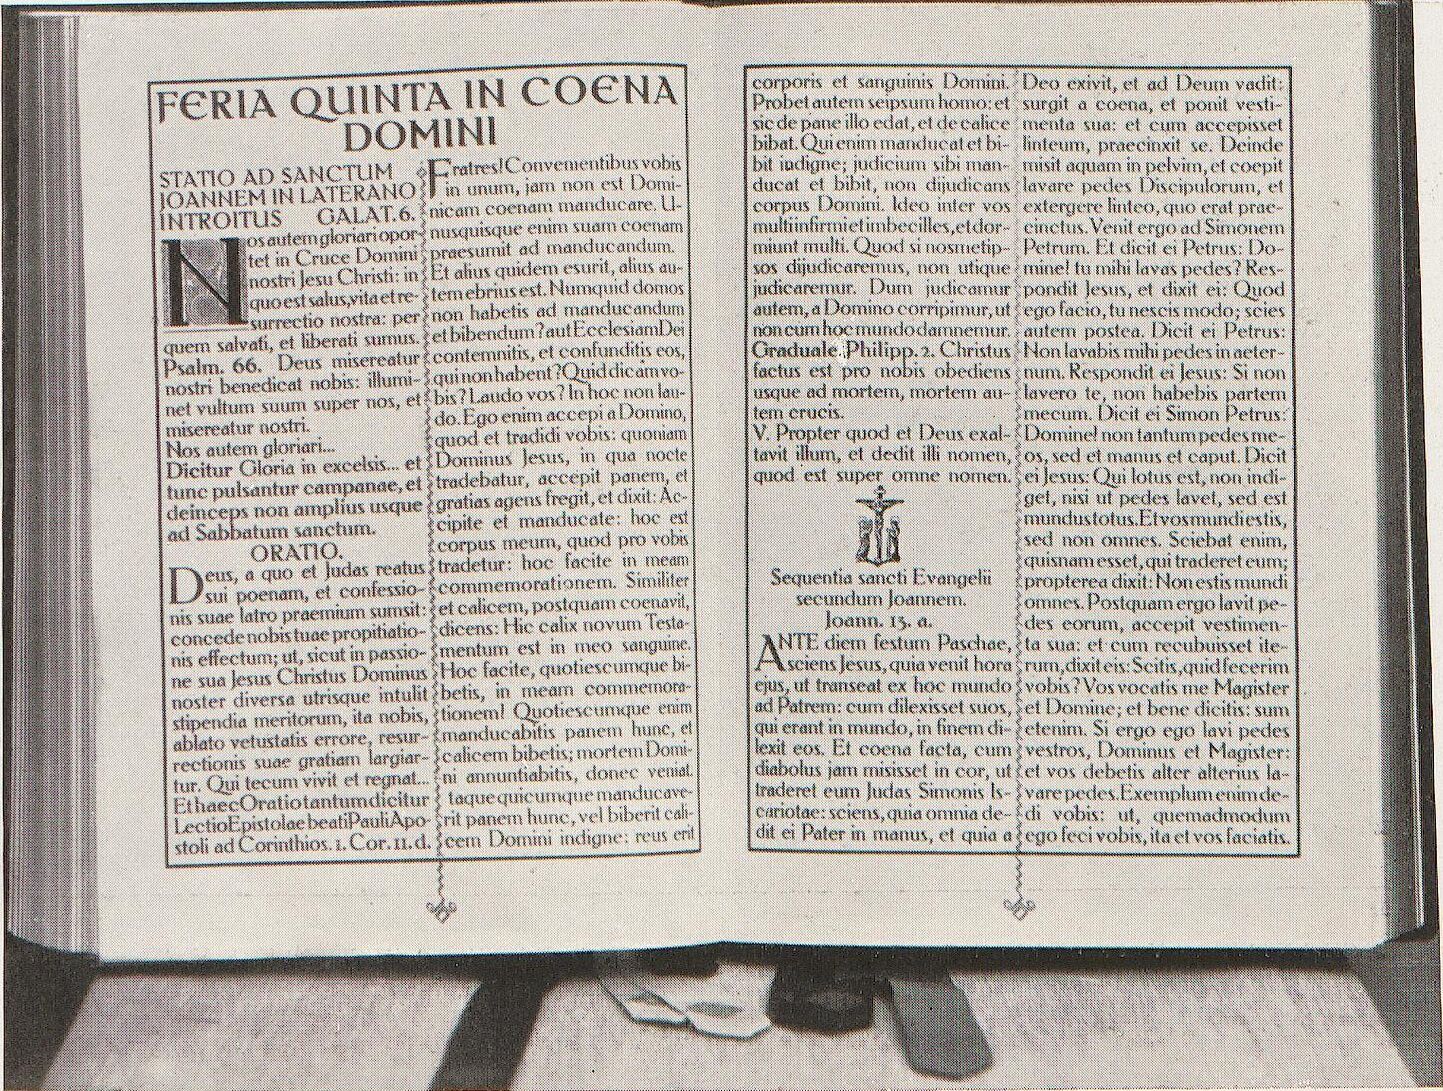 FERIA QUINTA IN COENA
DOMINI
STATIO AD SANCTUM
JOANNEM IN LATERANO
INTROITUS GALAT. 6.
Nos autem gloriari opor-
tet in Cruce Domini
nostri Jesu Christi: in
quo est salus, vita et re-
surrectio nostra: per
quem salvati, et liberati sumus.
Psalm. 66. Deus misereatur
nostri benedicat nobis: illumi-
net vultum suum super nos, et
misereatur nostri.
Nos autem gloriari...
Dicitur Gloria in excelsis... et
tunc pulsantur campanae, et
deinceps non amplius usque
ad Sabbatum sanctum.
ORATIO.
Deus, a quo et Judas reatus
sui poenam, et confessio-
nis suae latro praemium sumsit:
concede nobis tuae propitiatio-
nis effectum; ut, sicut in passio-
ne sua Jesus Christus Dominus
noster diversa utrisque intulit
stipendia meritorum, ita nobis,
ablato vetustatis errore, resur-
rectionis suae gratiam largiar-
tur. Qui tecum vivit et regnat...
Et haec Oratio tantum dicitur
Lectio Epistolae beati Pauli Apo-
stoli ad Corinthios. 1. Cor. 11. d.
Fratres! Convenientibus vobis
in unum, jam non est Domi-
nicam coenam manducare. U-
nusquisque enim suam coenam
praesumit ad manducandum.
Et alius quidem esurit, alius au-
tem ebrius est. Numquid domos
non habetis ad manducandum
et bibendum? aut Ecclesiam Dei
contemnitis, et confunditis eos,
qui non habent? Quid dicam vo-
bis? Laudo vos? In hoc non lau-
do. Ego enim accepi a Domino,
quod et tradidi vobis: quoniam
Dominus Jesus, in qua nocte
tradebatur, accepit panem, et
gratias agens fregit, et dixit: Ac-
cipite et manducate: hoc est
corpus meum, quod pro vobis
tradetur: hoc facite in meam
commemorationem. Similiter
et calicem, postquam coenavit,
dicens: Hic calix novum Testa-
mentum est in meo sanguine.
Hoc facite, quotiescumque bi-
betis, in meam commemora-
tionem! Quotiescumque enim
manducabitis panem hunc, et
calicem bibetis; mortem Domi-
ni annuntiabitis, donec veniat.
taque quicumque manducave-
rit panem hunc, vel biberit cali-
cem Domini indigne: reus erit
corporis et sanguinis Domini.
Probet autem seipsum homo: et
sic de pane illo edat, et de calice
bibat. Qui enim manducat et bi-
bit indigne; judicium sibi man-
ducat et bibit, non dijudicans
corpus Domini. Ideo inter vos
multi infirmi et imbecilles, et dor-
miunt multi. Quod si nosmetip-
sos dijudicaremus, non utique
judicaremur. Dum judicamur
autem, a Domino corripimur, ut
non cum hoc mundo damnemur.
Graduale. Philipp. 2. Christus
factus est pro nobis obediens
usque ad mortem, mortem au-
tem crucis.
V. Propter quod et Deus exal-
tavit illum, et dedit illi nomen,
quod est super omne nomen.
Sequentia sancti Evangelii
secundum Joannem.
Joann. 13. a.
ANTE diem festum Paschae,
sciens Jesus, quia venit hora
ejus, ut transeat ex hoc mundo
ad Patrem: cum dilexisset suos,
qui erant in mundo, in finem di-
lexit eos. Et coena facta, cum
diabolus jam misisset in cor, ut
traderet eum Judas Simonis Is-
cariotae: sciens, quia omnia de-
dit ei Pater in manus, et quia a
Deo exivit, et ad Deum vadit:
surgit a coena, et ponit vesti-
menta sua: et cum accepisset
linteum, praecinxit se. Deinde
misit aquam in pelvim, et coepit
lavare pedes Discipulorum, et
extergere linteo, quo erat prae-
cinctus. Venit ergo ad Simonem
Petrum. Et dicit ei Petrus: Do-
mine! tu mihi lavas pedes? Res-
pondit Jesus, et dixit ei: Quod
ego facio, tu nescis modo; scies
autem postea. Dicit ei Petrus:
Non lavabis mihi pedes in aeter-
num. Respondit ei Jesus: Si non
lavero te, non habebis partem
mecum. Dicit ei Simon Petrus:
Domine! non tantum pedes me-
os, sed et manus et caput. Dicit
ei Jesus: Qui lotus est, non indi-
get, nisi ut pedes lavet, sed est
mundus totus. Et vos mundi estis,
sed non omnes. Sciebat enim,
quisnam esset, qui traderet eum;
propterea dixit: Non estis mundi
omnes. Postquam ergo lavit pe-
des eorum, accepit vestimen-
ta sua: et cum recubuisset ite-
rum, dixit eis: Scitis, quid fecerim
vobis? Vos vocatis me Magister
et Domine; et bene dicitis: sum
etenim. Si ergo ego lavi pedes
vestros, Dominus et Magister:
et vos debetis alter alterius la-
vare pedes. Exemplum enim de-
di vobis: ut, quemadmodum
ego feci vobis, ita et vos faciatis.